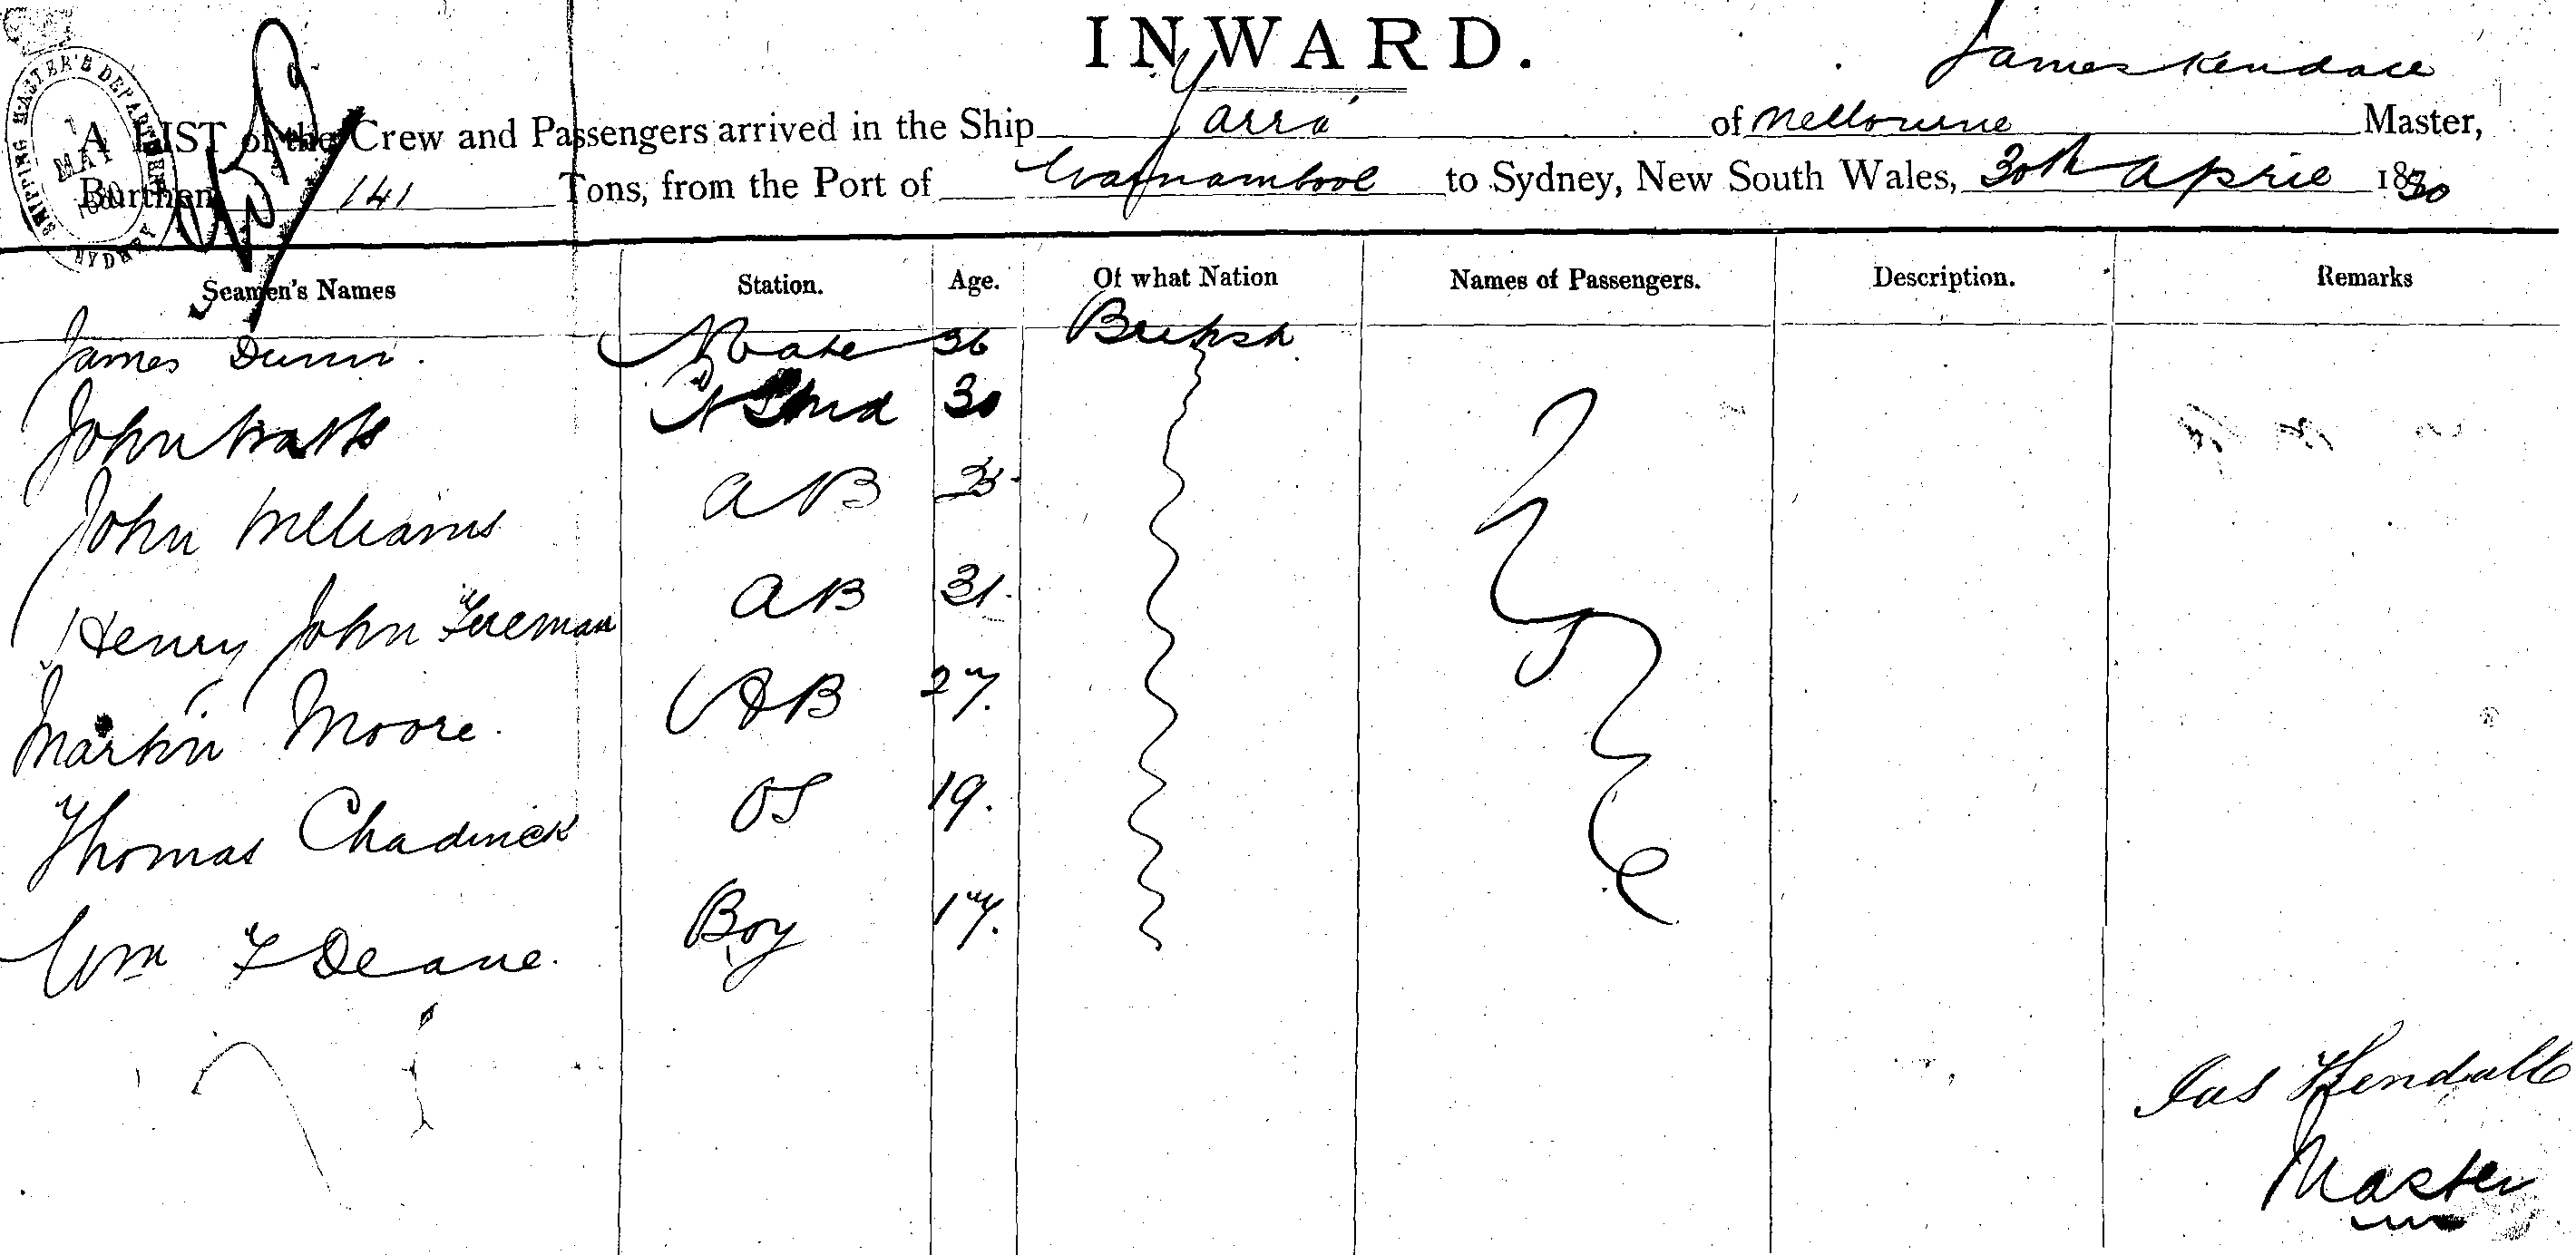 INWARD.
James Kendall
A LIST of the Crew and Passengers arrived in the Ship Yarra of Melbourne Master,
Burthen 141 Tons, from the Port of Warnambool to Sydney, New South Wales, 30th April 1880
SHIPPING MASTER'S DEPARTMENT
1 MAY 1880
SYDNEY
Seamen's Names Station. Age. Of what Nation Names of Passengers. Description. Remarks
James Dunn. Mate 36 British
John Watts 30
John Williams AB
Henry John Freeman AB 31.
Martin Moore. AB 27.
Thomas Chadwick OS 19.
Wm F Deane. Boy 17.
Jas Kendall
Master